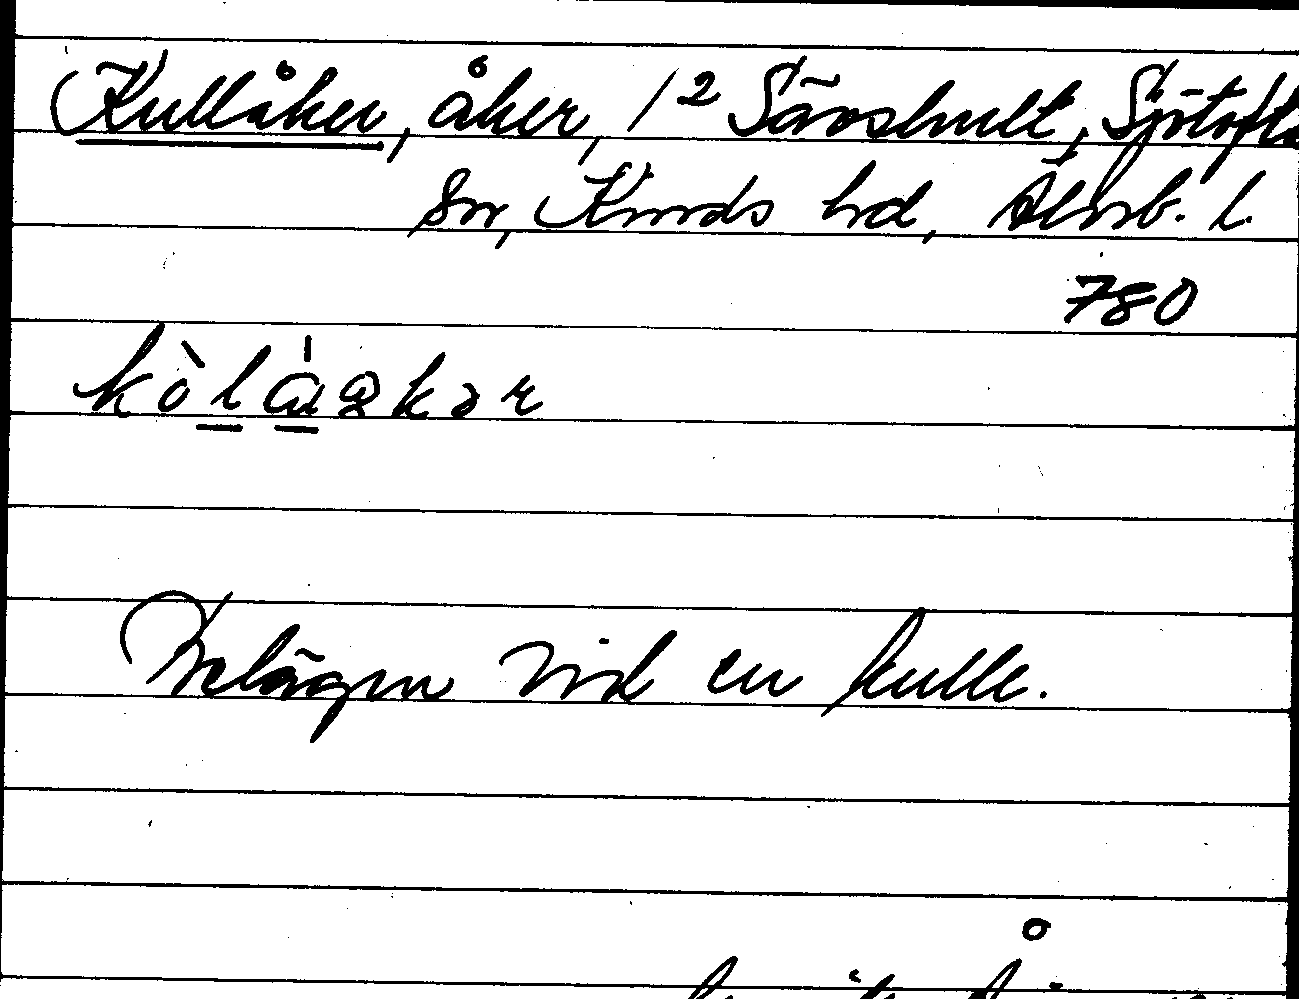 Kullåker, åker, 1² Sävshult, Sjötofta
sn, Kinds hd, Älvsb. l.
780
kòlákər
Belägen vid en kulle.